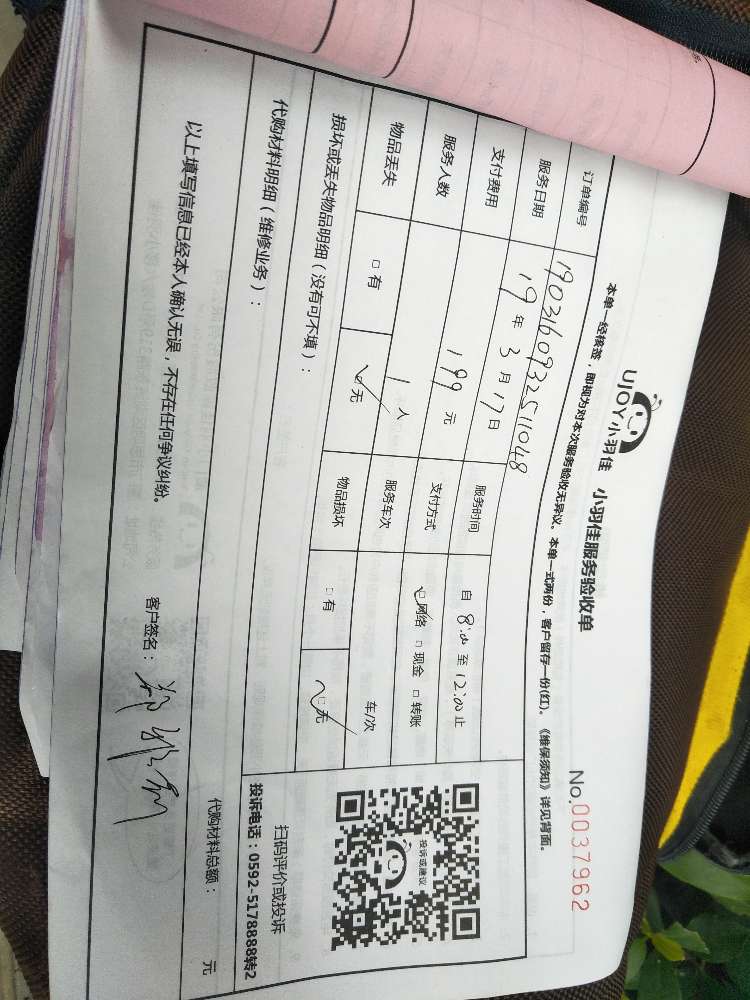 UJOY小羽佳 小羽佳服务验收单
No.0037962
本单一经核签，即视为对本次服务验收无异议。本单一式两份，客户留存一份(红)。《维保须知》详见背面。
订单编号 1903160932511048
服务日期 19年3月17日 服务时间 自8:00至12:00止
支付费用 199元 支付方式 ☑网络 □现金 □转账
服务人数 1人 服务车次 车/次
物品丢失 □有 ☑无 物品损坏 □有 ☑无
损坏或丢失物品明细（没有可不填）：
代购材料明细（维修业务）：
代购材料总额： 元
投诉或建议
扫码评价或投诉
投诉电话：0592-5178888转2
以上填写信息已经本人确认无误，不存在任何争议纠纷。
客户签名：